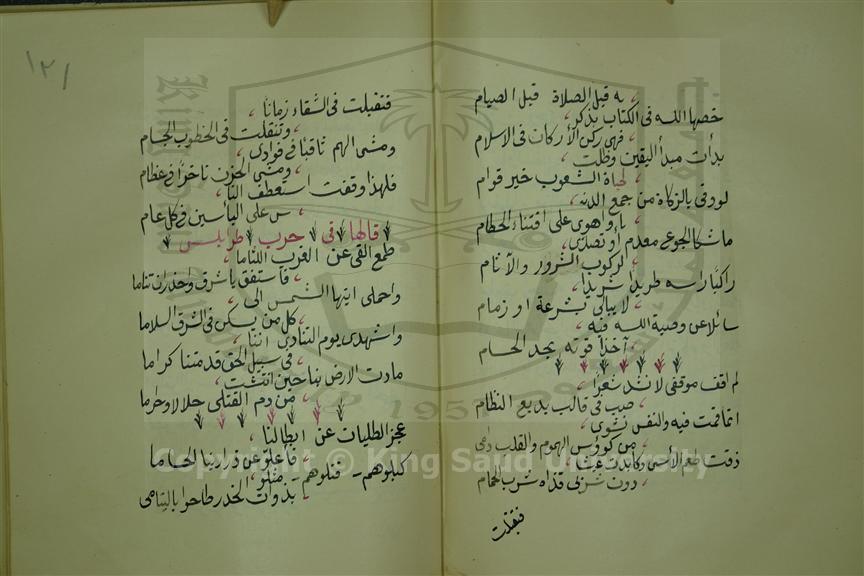 خصها الله فى الكتاب بذكر
به قبل الصلاة قبل الصيام
بدأت مبدأ اليقين وظلت
فهى ركن الأركان فى الاسلام
لو وفى بالزكاة من جمع الدنـ
لحياة الشعوب خير قوام
ما شكا الجوع معدم او تصدى
يا واهوى على اقتناء الحطام
راكبا راسه طريدا شريدا
لركوب الشرور والآثام
سائلا عن وصية الله فيه
لا يبالى بشرعة او زمام
آخذا قوته بحد الحسام
لم اقف موقفى لأنشد شعرا
صيب فى قالب بديع النظام
انما قمت فيه والنفس نشوى
من كؤوس الهموم والقلب دامى
ذقت طعم الأسى وكابدت عيشا
دون شربى قذاه شرب الحمام
فتقلبت
١٢١
فتقلبت فى الشقاء زمانا
وتنقلت فى الخطوب الجسام
ومشى الهم ثاقبا فى فؤادى
ومشى الحزن ناخرا فى عظامى
فلهذا وقفت استعطف النا
س على البائسين فى كل عام
قالها فى حرب طرابلس
طمع القى عن الغرب اللثاما
فاستفق يا شرق واحذر ان تناما
واحملى ايتها الشمس الى
كل من يسكن فى الشرق السلاما
واشهدى يوم التنادى اننا
فى سبيل الحق قد متنا كراما
مادت الارض بنا حين انتشت
من دم القتلى حلالا وحراما
عجز الطليان عن ابطالنا
فأعلوا من ذرارينا الحساما
كبلوهم - قتلوهم - مثلوا
بذوات الخدر طاحوا باليتامى